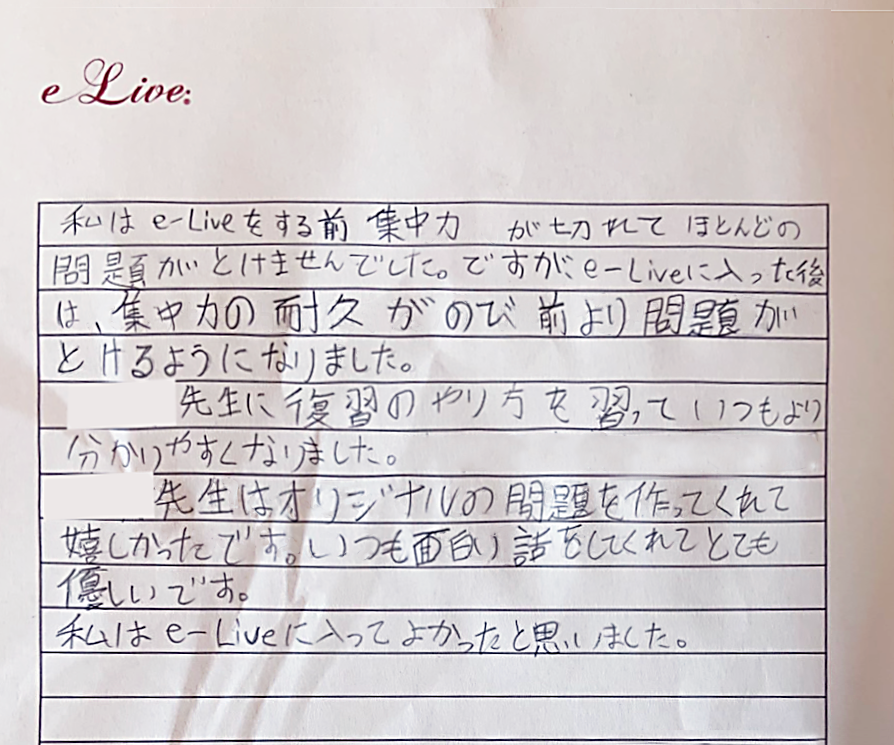 e Live:
私は e-Liveをする前 集中力 が切れて ほとんどの
問題がとけませんでした。ですが、e-Liveに入った後
は、集中力の耐久がのび前より問題が
とけるようになりました。
先生に復習のやり方を習っていつもより
分かりやすくなりました。
先生はオリジナルの問題を作ってくれて
嬉しかったです。いつも面白い話をしてくれてとても
優しいです。
私はe-Liveに入ってよかったと思いました。